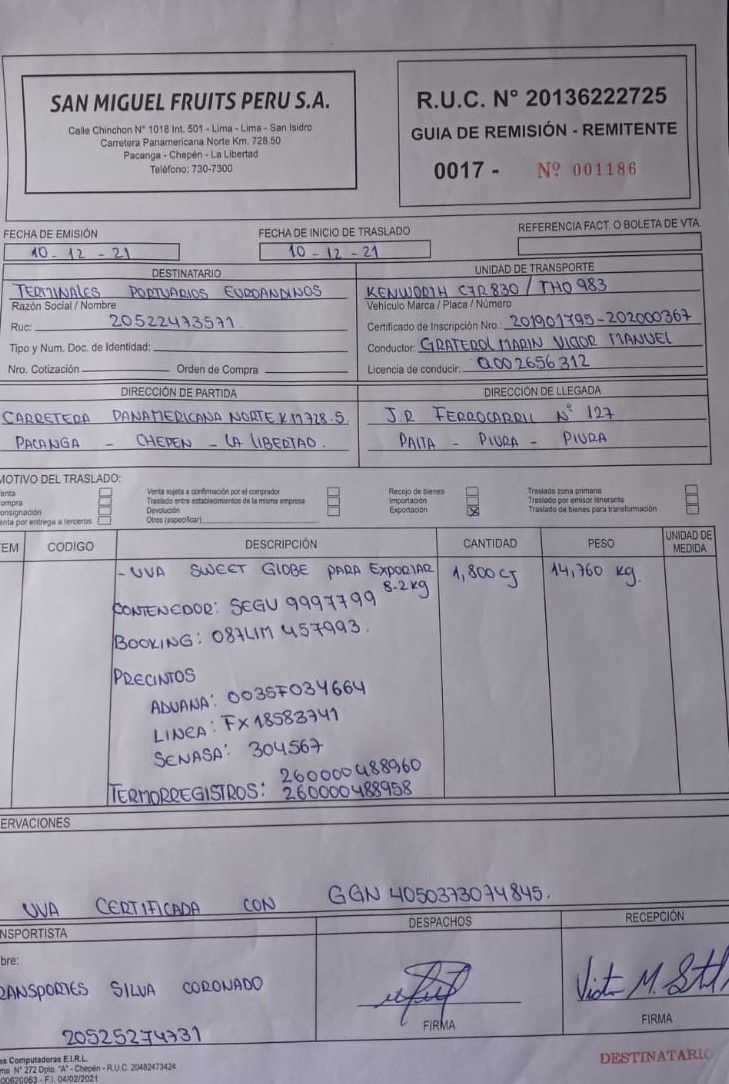 SAN MIGUEL FRUITS PERU S.A.
Calle Chinchon N° 1018 Int. 501 - Lima - Lima - San Isidro
Carretera Panamericana Norte Km. 728.50
Pacanga - Chepén - La Libertad
Teléfono: 730-7300
R.U.C. N° 20136222725
GUIA DE REMISIÓN - REMITENTE
0017 - Nº 001186
FECHA DE EMISIÓN
10 - 12 - 21
FECHA DE INICIO DE TRASLADO
10 - 12 - 21
REFERENCIA FACT. O BOLETA DE VTA.
DESTINATARIO
TERMINALES PORTUARIOS EUROANDINOS
Razón Social / Nombre
Ruc: 20522473571
Tipo y Num. Doc. de Identidad:
Nro. Cotización Orden de Compra
UNIDAD DE TRANSPORTE
KENWORTH C7R830 / TH0983
Vehículo Marca / Placa / Número
Certificado de Inscripción Nro.: 201901795-202000367
Conductor: GRATEROL MARIN VICTOR MANUEL
Licencia de conducir: Q002656312
DIRECCIÓN DE PARTIDA
CARRETERA PANAMERICANA NORTE KM728.5
PACANGA - CHEPEN - LA LIBERTAD.
DIRECCIÓN DE LLEGADA
J.R FERROCARRIL N° 127
PAITA - PIURA - PIURA
MOTIVO DEL TRASLADO:
enta
ompra
onsignación
enta por entrega a terceros
Venta sujeta a confirmación por el comprador
Traslado entre establecimientos de la misma empresa
Devolución
Otros (especificar)
Recojo de bienes
Importación
Exportación X
Traslado zona primaria
Traslado por emisor itinerante
Traslado de bienes para transformación
EM CODIGO DESCRIPCIÓN CANTIDAD PESO UNIDAD DE MEDIDA
- UVA SWEET GLOBE PARA EXPORTAR 1,800 CJ 14,760 kg.
8-2kg
CONTENEDOR: SEGU 9997799
BOOKING: 087LIM 457993.
PRECINTOS
ADUANA: 0035F034664
LINEA: FX18583741
SENASA: 304567
TERMORREGISTROS: 260000488960
260000488958
ERVACIONES
UVA CERTIFICADA CON GGN 4050373074845.
NSPORTISTA
bre:
RANSPORTES SILVA CORONADO
20525274731
DESPACHOS
FIRMA
RECEPCIÓN
FIRMA
as Computadoras E.I.R.L.
ma N° 272 Dpto. "A" - Chepén - R.U.C. 20482473424
00620063 - F.I. 04/02/2021
DESTINATARIO